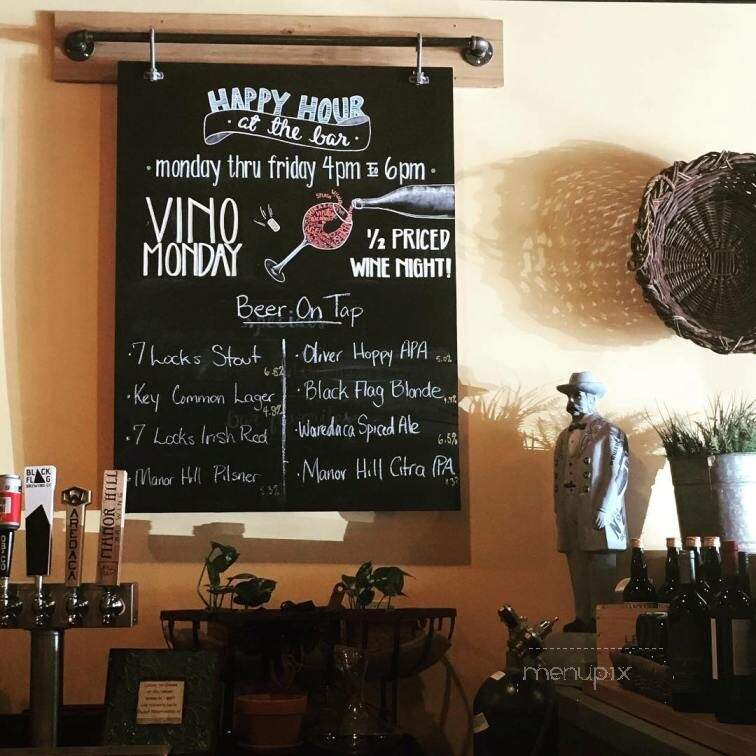 HAPPY HOUR
• at the bar •
• monday thru friday 4pm to 6pm •
VINO
MONDAY
1/2 PRICED
WINE NIGHT!
Beer On Tap
• 7 Locks Stout
• Key Common Lager 4.8%
• 7 Locks Irish Red
• Manor Hill Pilsner
• Oliver Hoppy APA
• Black Flag Blonde
• Waredaca Spiced Ale 6.5%
• Manor Hill Citra IPA
BLACK
FLAG
BREWING CO
AREDACA
MANOR HILL
BREWING
menupix